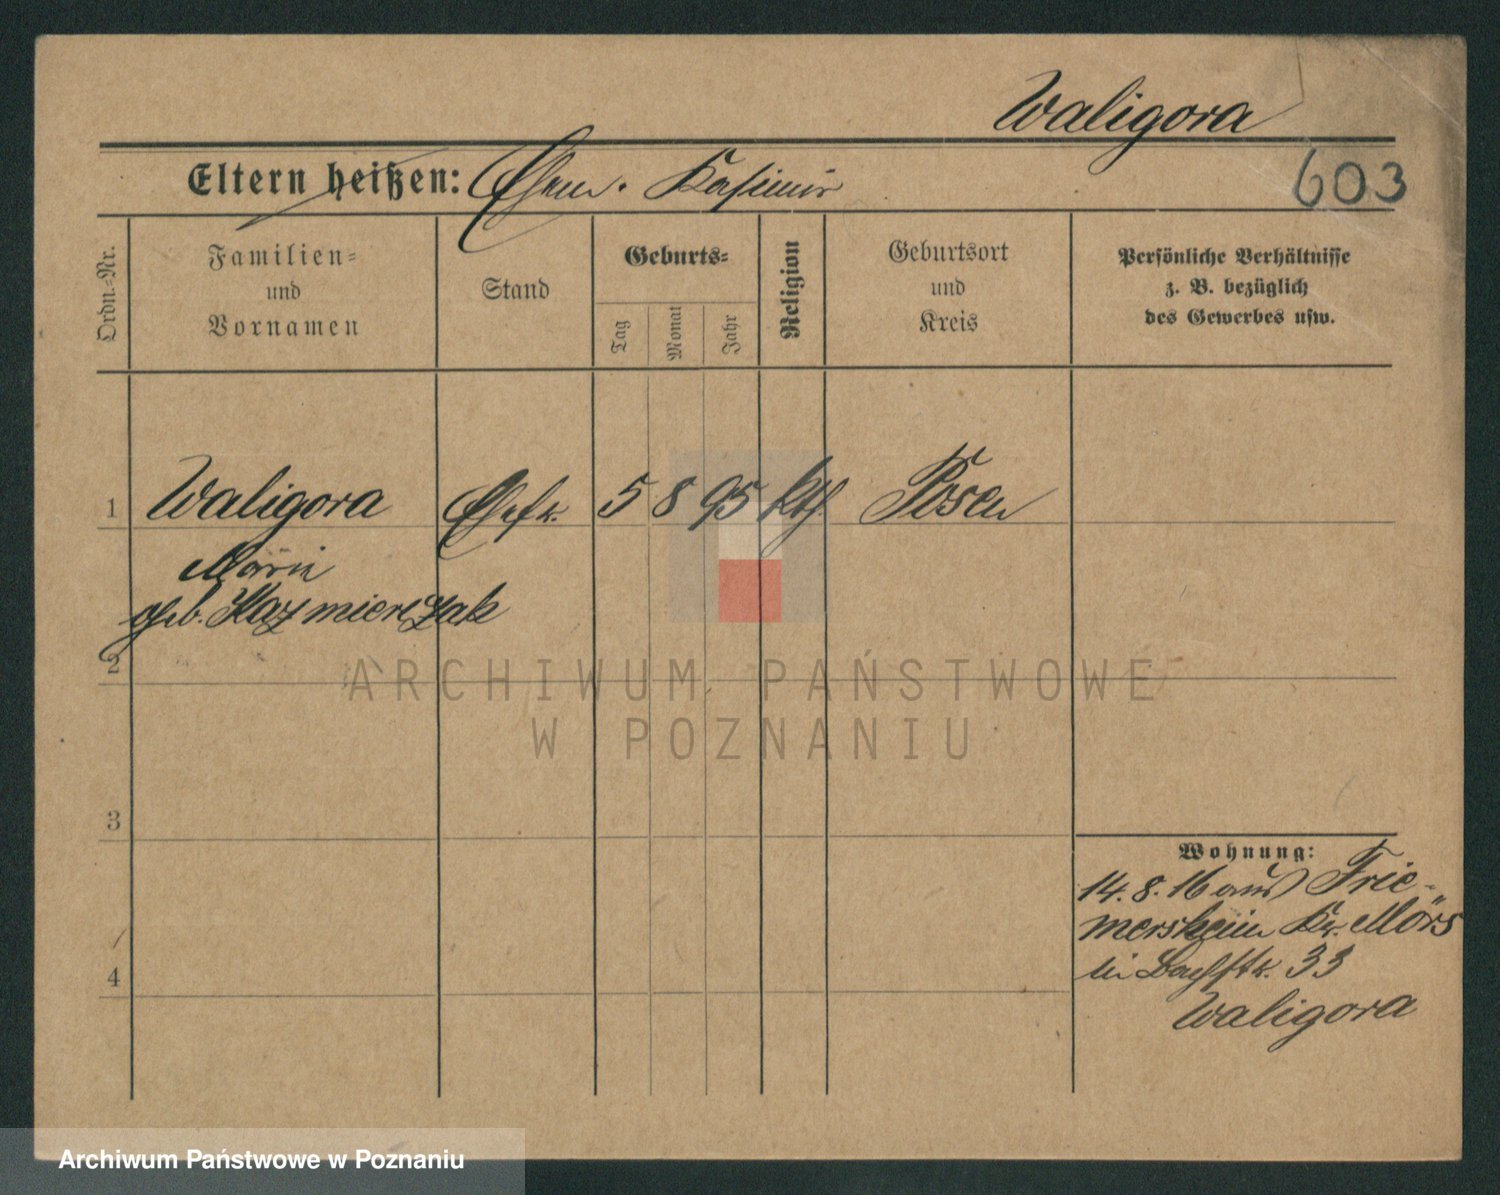 Waligora
Eltern heißen: Ehem. Kasimir
603
Ordn.-Nr.
Familien-
und
Vornamen
Stand
Geburts-
Tag
Monat
Jahr
Religion
Geburtsort
und
Kreis
Persönliche Verhältnisse
z. B. bezüglich
des Gewerbes usw.
1 Waligora Ehefr. 5 8 95 kth. Posen
Marie
geb. Kazmierczak
2
3
4
Wohnung:
14.8.16 aus Frie-
mersheim Kr. Mörs
bei Bachstr. 33
Waligora
ARCHIWUM PAŃSTWOWE
W POZNANIU
Archiwum Państwowe w Poznaniu